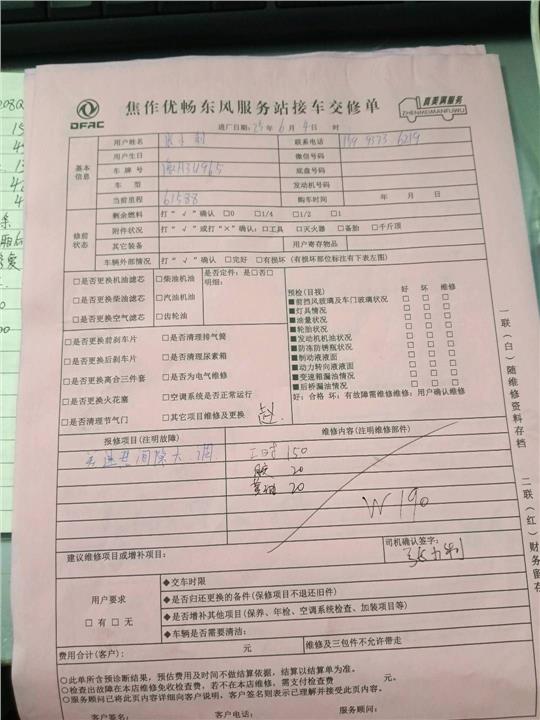 208Q
DFAC
焦作优畅东风服务站接车交修单
真美满服务
ZHENMEIMANFUWU
进厂日期: 25 年 6 月 4 日 时
基本信息
用户姓名 联系电话 159 9373 6219
用户生日 微信号码
车牌号 底盘号码
车型 发动机号码
当前里程 61588 购车时间 年 月 日
修前状态
剩余燃料 打“√”确认 □0 □1/4 □1/2 □1
附件状况 打“√”或打“×”确认:□工具 □灭火器 □备胎 □千斤顶
其它装备 用户寄存物品
车辆外部情况 打“√”确认 □完好 □有损坏(有损坏部位标注有下表左图)
□是否更换机油滤芯 □柴油机油
□是否更换柴油滤芯 □汽油机油
□是否更换空气滤芯 □齿轮油
是否定件: 是□否□
明细:
□是否更换前刹车片 □是否清理排气筒
□是否更换后刹车片 □是否清理尿素箱
□是否更换离合三件套 □是否为电气维修
□是否更换火花塞 □空调系统是否正常运行
□是否清理节气门 □其它项目维修及更换
预检(目视) 好 坏 维修
■前挡风玻璃及车门玻璃状况 □ □ □
■灯具情况 □ □ □
■油量状况 □ □ □
■轮胎状况 □ □ □
■发动机机油状况 □ □ □
■防冻防锈瓶状况 □ □ □
■制动液液面 □ □ □
■动力转向液液面 □ □ □
■变速箱漏油情况 □ □ □
■后桥漏油情况 □ □ □
好:合格 坏:有故障需维修维修:用户确认维修
报修项目(注明故障) 维修内容(注明维修部件)
间隙大 调 工时 150
胶 20
黄油 20
W 190
建议维修项目或增补项目:
司机确认签字:
用户要求
□有 □无
◆交车时限
◆是否归还更换的备件(保修项目不退还旧件)
◆是否增补其他项目(保养、年检、空调系统检查、加装项目等)
◆车辆是否需要清洁:
费用合计(客户): 元 维修及三包件不允许带走
○此单所含预诊断结果,预估费用及时间不做结算依据,结算以结算单为准。
○检查出故障在本店维修免收检查费,若不在本店维修,需支付检查费 元。
○服务顾问已将此页内容详细向客户说明。客户签名则表示已理解并接受此页内容。
客户签名: 客户电话: 服务顾问:
一联(白)随维修资料存档
二联(红)财务留存